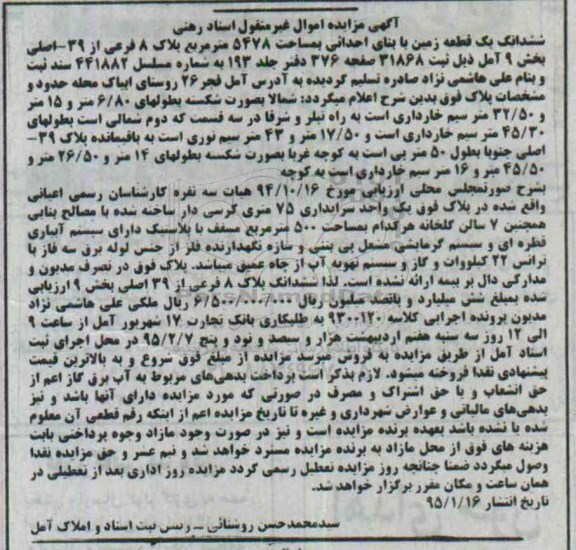 آگهی مزایده اموال غیرمنقول اسناد رهنی
ششدانگ یک قطعه زمین با بنای احداثی بمساحت ۵۴۷۸ مترمربع پلاک ۸ فرعی از ۳۹-اصلی
بخش ۹ آمل ذیل ثبت ۳۱۸۶۸ صفحه ۳۷۶ دفتر جلد ۱۹۳ به شماره مسلسل ۴۴۱۸۸۲ سند ثبت
و بنام علی هاشمی نژاد صادره تسلیم گردیده به آدرس آمل فجر ۲۶ روستای اییاک محله حدود و
مشخصات پلاک فوق بدین شرح اعلام میگردد: شمالا بصورت شکسته بطولهای ۶/۸۰ متر و ۱۵ متر
و ۳۲/۵۰ متر سیم خارداری است به راه نیلر و شرقا در سه قسمت که دوم شمالی است بطولهای
۴۵/۳۰ متر سیم خارداری است و ۱۷/۵۰ متر و ۴۳ متر سیم نوری است به باقیمانده پلاک ۳۹-
اصلی جنوبا بطول ۵۰ متر پی است به کوچه غربا بصورت شکسته بطولهای ۱۴ متر و ۲۶/۵۰ متر و
۴۵/۵۰ متر و ۱۶ متر سیم خارداری است به کوچه
بشرح صورتمجلس محلی ارزیابی مورخ ۹۴/۱۰/۱۶ هیات سه نفره کارشناسان رسمی اعیانی
واقع شده در پلاک فوق یک واحد سرایداری ۷۵ متری کرسی دار ساخته شده با مصالح بنایی
همچنین ۷ سالن گلخانه هرکدام بمساحت ۵۰۰ مترمربع مسقف با پلاستیک دارای سیستم آبیاری
قطره ای و سیستم گرمایشی مشعل پی یتنی و سازه نگهدارنده فلز از جنس لوله برق سه فاز با
ترانس ۲۲ کیلووات و گاز و سیستم تهویه آب از چاه عمیق میباشد. پلاک فوق در تصرف مدیون و
مدارکی دال بر بیمه ارائه نشده است. لذا ششدانگ پلاک ۸ فرعی از ۳۹ اصلی بخش ۹ ارزیابی
شده بمبلغ شش میلیارد و پانصد میلیون ریال ۶/۵۰۰/۰۰۰/۰۰۰ ریال ملکی علی هاشمی نژاد
مدیون پرونده اجرایی کلاسه ۹۳۰۰۱۲۰ به طلبکاری بانک تجارت ۱۷ شهریور آمل از ساعت ۹
الی ۱۲ روز سه شنبه هفتم اردیبهشت هزار و سیصد و نود و پنج ۹۵/۲/۷ در محل اجرای ثبت
اسناد آمل از طریق مزایده به فروش میرسد مزایده از مبلغ فوق شروع و به بالاترین قیمت
پیشنهادی نقدا فروخته میشود. لازم بذکر است پرداخت بدهی‌های مربوط به آب برق گاز اعم از
حق انشعاب و یا حق اشتراک و مصرف در صورتی که مورد مزایده دارای آنها باشد و نیز
بدهی‌های مالیاتی و عوارض شهرداری و غیره تا تاریخ مزایده اعم از اینکه رقم قطعی آن معلوم
شده یا نشده باشد بعهده برنده مزایده است و نیز در صورت وجود مازاد وجوه پرداختی بابت
هزینه های فوق از محل مازاد به برنده مزایده مسترد خواهد شد و نیم عشر و حق مزایده نقدا
وصول میگردد ضمنا چنانچه روز مزایده تعطیل رسمی گردد مزایده روز اداری بعد از تعطیلی در
همان ساعت و مکان مقرر برگزار خواهد شد.
تاریخ انتشار ۹۵/۱/۱۶
سیدمحمدحسن روشنائی - رییس ثبت اسناد و املاک آمل